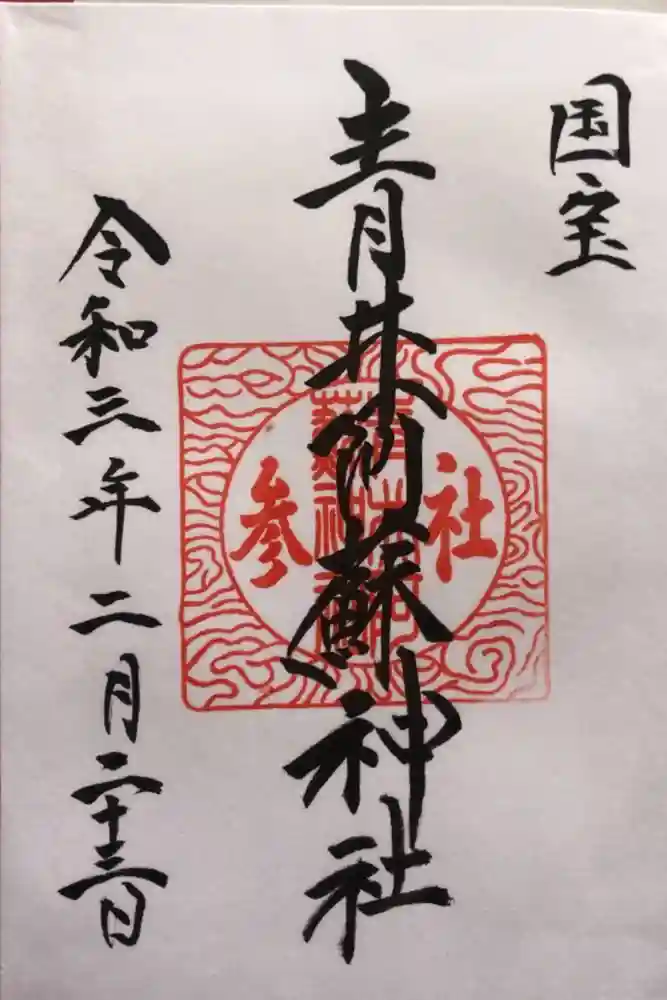 国宝
青井阿蘇神社
社参
青井阿蘇神社
令和三年二月二十三日